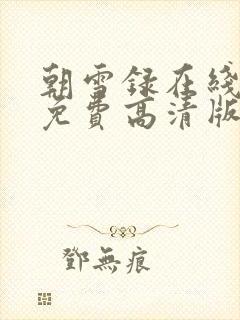 朝雪録在綫
免費高清版
鄧無痕